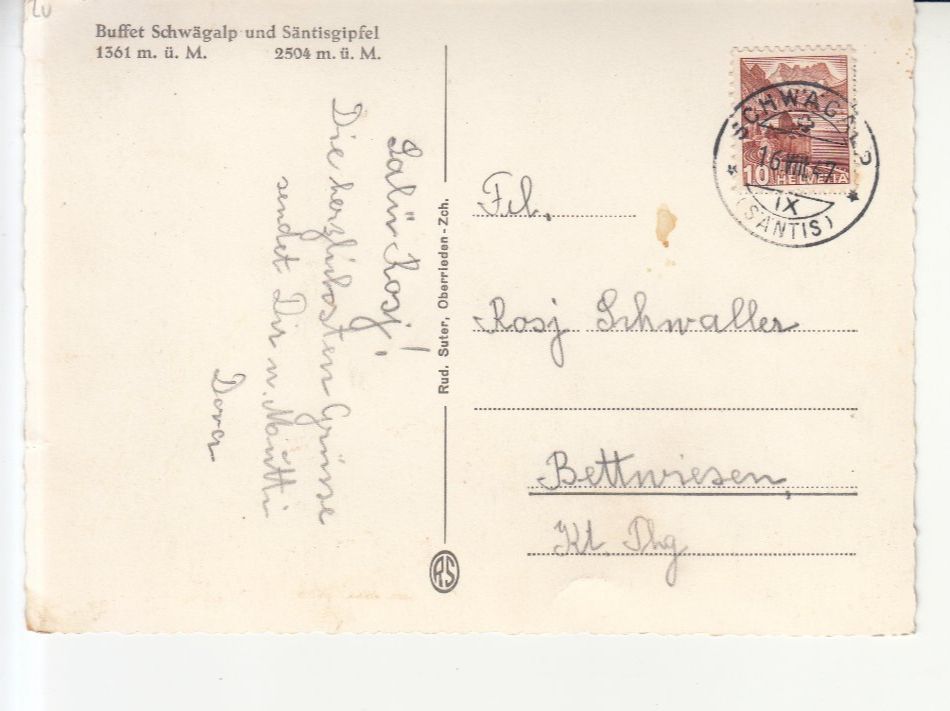 Buffet Schwägalp und Säntisgipfel
1361 m. ü. M. 2504 m. ü. M.
Salü Rosj!
Die herzlichsten Grüsse
sendet Dir u. Mütti
Dora
Rud. Suter, Oberrieden-Zch.
RS
SCHWÄGALP
16.VIII.47
IX
(SÄNTIS)
10 HELVETIA
Frl.
Rosj Schwaller
Bettwiesen,
Kt. Thg